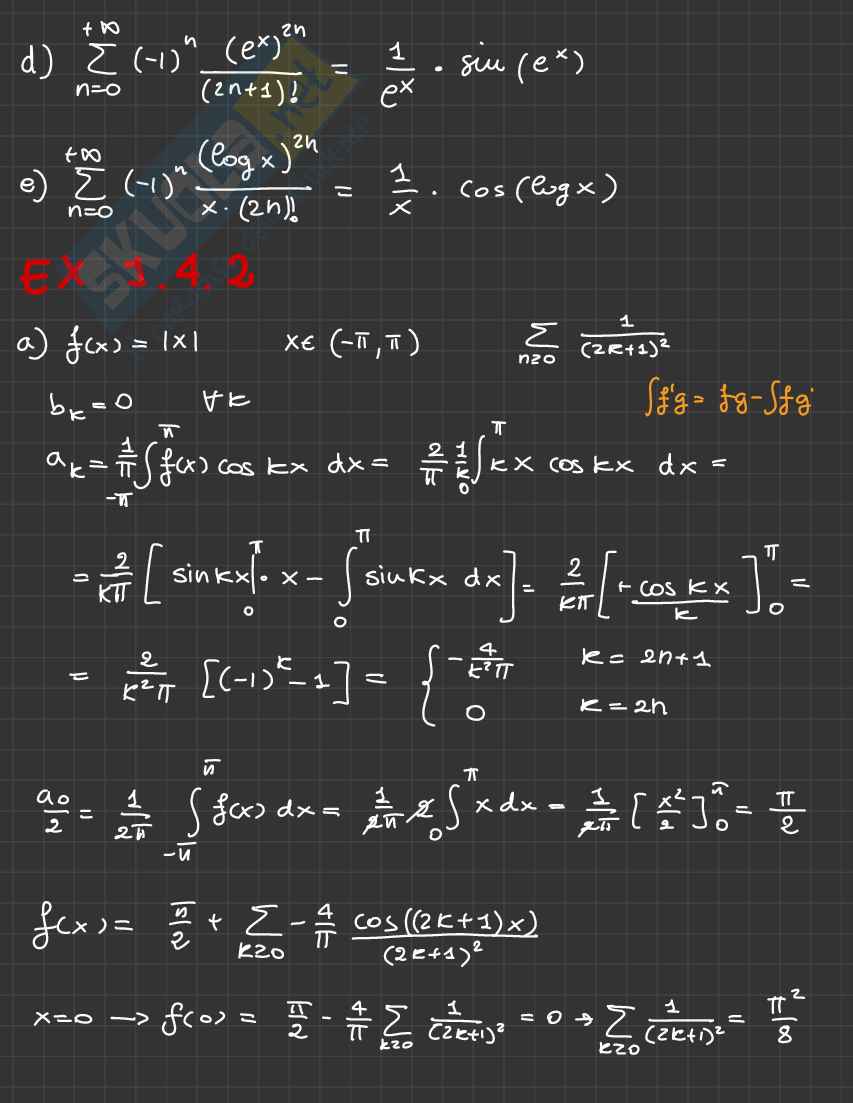 d) \sum_{n=0}^{+\infty} (-1)^n \frac{(e^x)^{2n}}{(2n+1)!} = \frac{1}{e^x} \cdot sin(e^x)
e) \sum_{n=0}^{+\infty} (-1)^n \frac{(log x)^{2n}}{x \cdot (2n)!} = \frac{1}{x} \cdot cos(log x)
SKUOLA.net
EX 1.4.2
a) f(x) = |x| x ∈ (-π, π) \sum_{n≥0} \frac{1}{(2k+1)^2}
b_k = 0 ∀k ∫f'g = fg - ∫fg'
a_k = \frac{1}{π} \int_{-π}^{π} f(x) cos kx dx = \frac{2}{π} \frac{1}{k} \int_0^{π} kx cos kx dx =
= \frac{2}{kπ} [ sin kx |_0^{π} \cdot x - \int_0^{π} sin kx dx ] = \frac{2}{kπ} [ + \frac{cos kx}{k} ]_0^{π} =
= \frac{2}{k^2 π} [(-1)^k - 1] = { -\frac{4}{k^2 π} k = 2n+1
0 k = 2n
\frac{a_0}{2} = \frac{1}{2π} \int_{-π}^{π} f(x) dx = \frac{1}{2π} 2 \int_0^{π} x dx = \frac{1}{2π} [ \frac{x^2}{2} ]_0^{π} = \frac{π}{2}
f(x) = \frac{π}{2} + \sum_{k≥0} - \frac{4}{π} \frac{cos((2k+1)x)}{(2k+1)^2}
x=0 → f(0) = \frac{π}{2} - \frac{4}{π} \sum_{k≥0} \frac{1}{(2k+1)^2} = 0 → \sum_{k≥0} \frac{1}{(2k+1)^2} = \frac{π^2}{8}